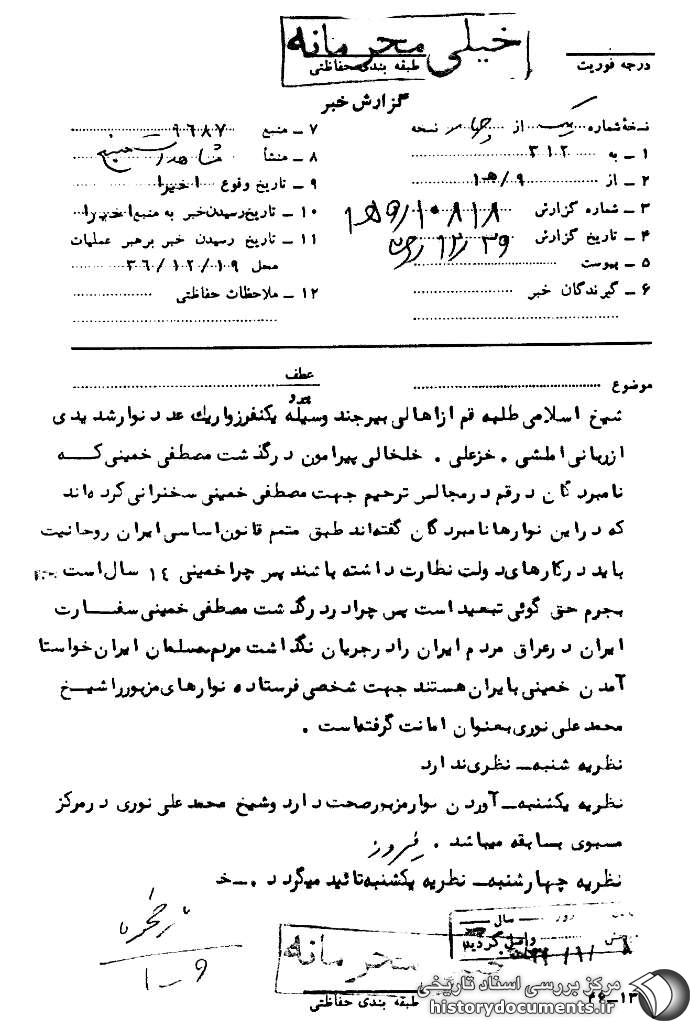 خیلی محرمانه
طبقه بندی حفاظتی
درجه فوریت
گزارش خبر
نسخهٔ شماره یک از چهار نسخه
۱ ـ به ۳۱۲
۲ ـ از ۹/هـ۱
۳ ـ شماره گزارش
۴ ـ تاریخ گزارش
۵ ـ پیوست
۶ ـ گیرندگان خبر
۷ ـ منبع ۹۶۸۷
۸ ـ منشأ
۹ ـ تاریخ وقوع اخیرا
۱۰ ـ تاریخ رسیدن خبر به منبع اخیرا
۱۱ ـ تاریخ رسیدن خبر برهبر عملیات
محل ۳۶/۱۲/۱۹
۱۲ ـ ملاحظات حفاظتی
موضوع
عطف
پیرو
شیخ اسلامی طلبه قم از اهالی بیرجند وسیله یکنفر زوار یك عدد نوار شدیدی
از ربانی املشی . خزعلی . خلخالی پیرامون درگذشت مصطفی خمینی کــه
نامبردگان در قم در مجالس ترحیم جهت مصطفی خمینی سخنرانی کرده اند
که در این نوارها نامبردگان گفته‌اند طبق متمم قانون اساسی ایران روحانیت
باید در کارهای دولت نظارت داشته باشند پس چرا خمینی ۱٤ سال است
بجرم حق گوئی تبعید است پس چرا در درگذشت مصطفی خمینی سفــارت
ایران در عراق مردم ایران را در جریان نگذاشت مردم مسلمان ایران خواستا
آمدن خمینی بایران هستند جهت شخصی فرستاده نوارهای مزبور را شیــخ
محمد علی نوری بعنوان امانت گرفته‌است .
نظریه شنبه‌ـ نظری ندارد
نظریه یکشنبه‌ـ آوردن نوار مزبور صحت دارد و شیخ محمد علی نوری در مرکز
مسبوی بسابقه میباشد . فیروز
نظریه چهارشنبه‌ـ نظریه یکشنبه تائید میگردد .ـ خ
۹ـ۱
سال
روز
واصل گردید
محرمانه
طبقه بندی حفاظتی
مرکز بررسی اسناد تاریخی
historydocuments.ir